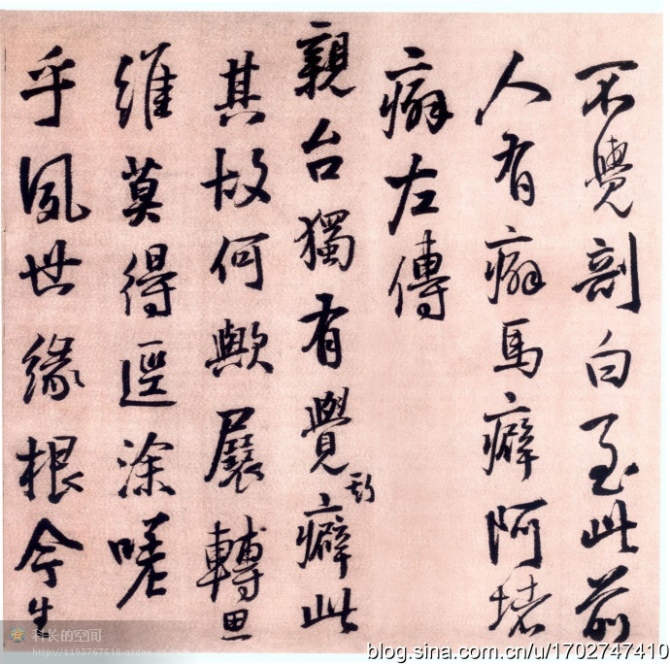 不覺剖白至此前
人有癖馬癖阿堵
癖左傳
親台獨有覺癖此
其故何歟展轉思
維莫得逕塗嗟
乎夙世緣根今生
科长的空间
blog.sina.com.cn/u/1702747410